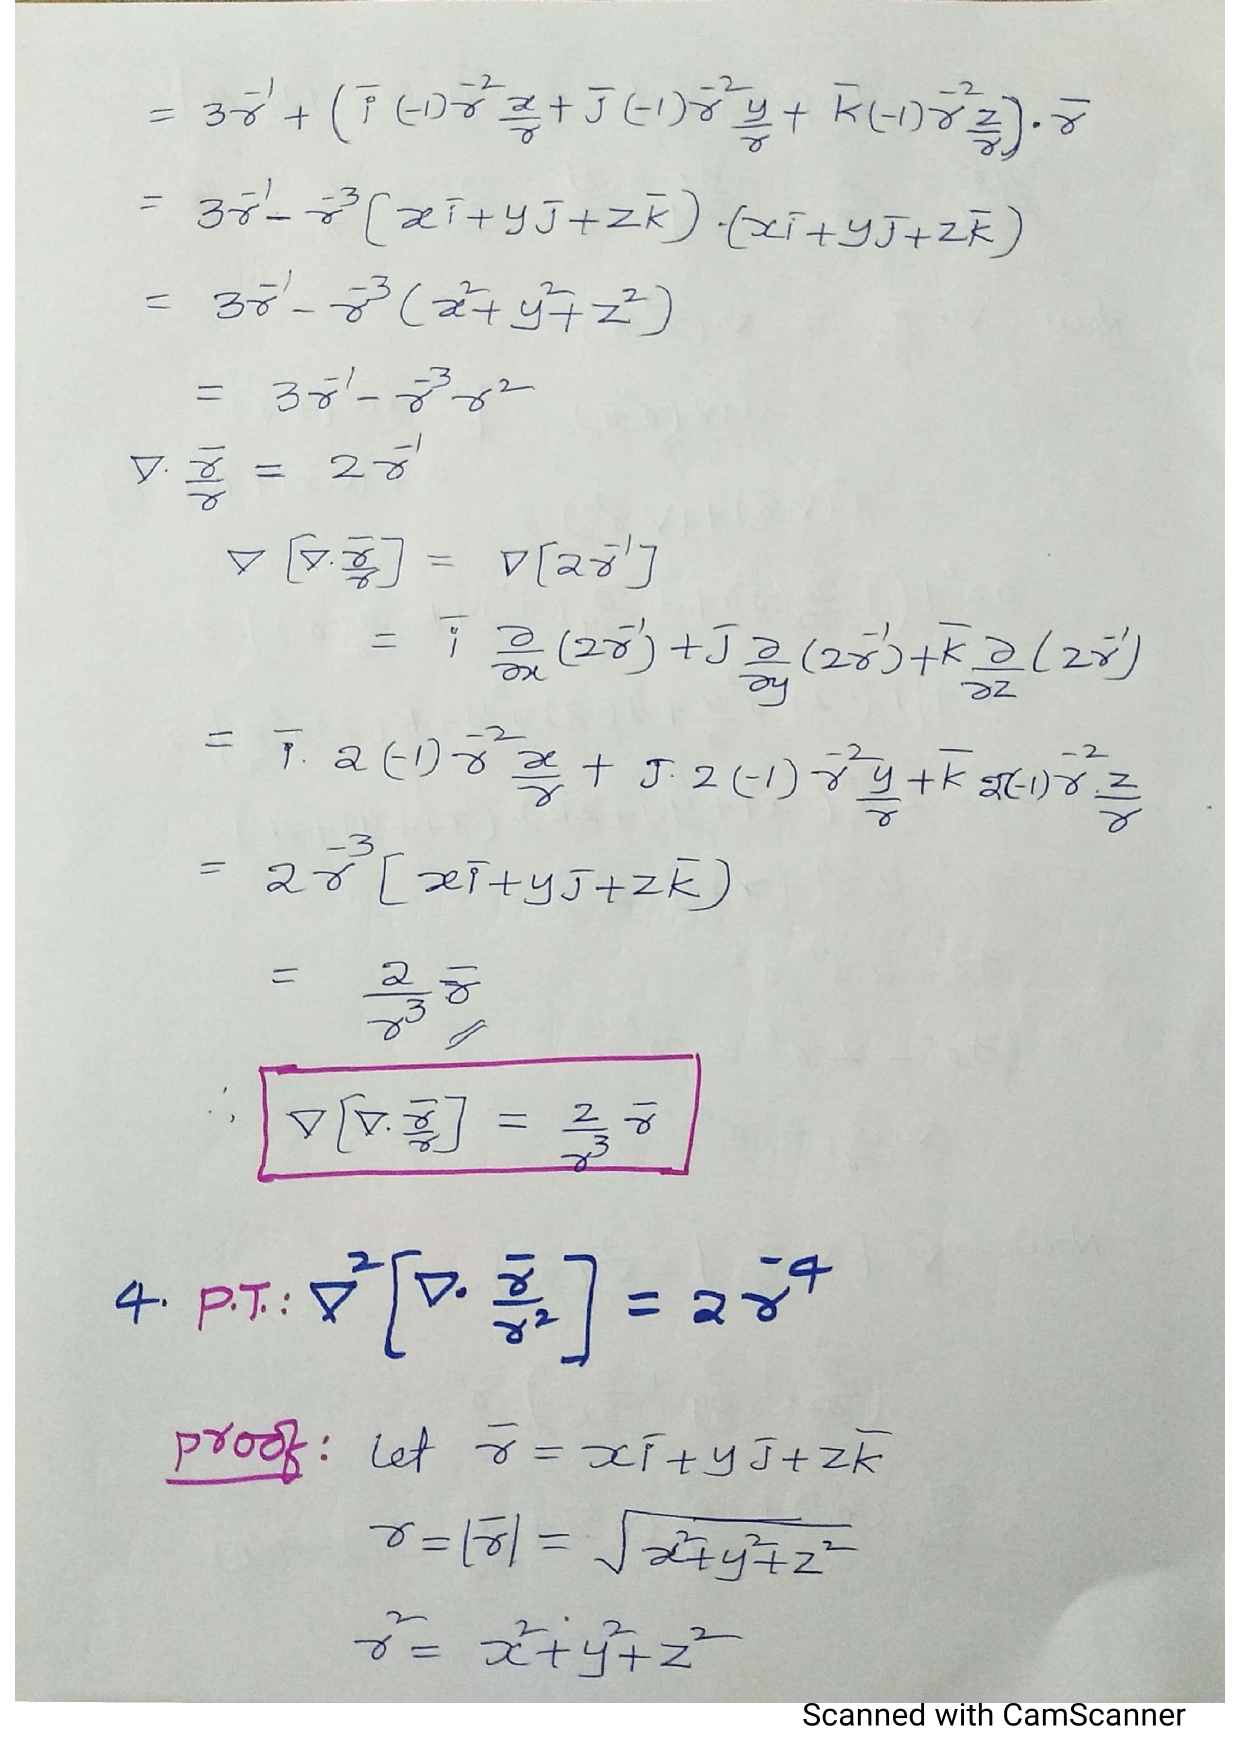 = 3r̄⁻¹ + (ī (-1) r⁻² x/r + j̄ (-1) r⁻² y/r + k̄ (-1) r⁻² z/r) · r̄
= 3r⁻¹ - r⁻³ [xī + yj̄ + zk̄) · (xī + yj̄ + zk̄)
= 3r⁻¹ - r⁻³ (x² + y² + z²)
= 3r⁻¹ - r⁻³ r²
∇· r̄/r = 2r⁻¹
∇ [∇· r̄/r] = ∇ [2r⁻¹]
= ī ∂/∂x (2r⁻¹) + j̄ ∂/∂y (2r⁻¹) + k̄ ∂/∂z (2r⁻¹)
= ī · 2 (-1) r⁻² x/r + j · 2 (-1) r⁻² y/r + k̄ 2(-1) r⁻² · z/r
= 2r⁻³ [xī + yj̄ + zk̄)
= 2/r³ r̄
∴ ∇ [∇· r̄/r] = 2/r³ r̄
4. P.T.: ∇² [∇· r̄/r²] = 2r⁻⁴
proof: Let r̄ = xī + yj̄ + zk̄
r = |r̄| = √(x² + y² + z²)
r² = x² + y² + z²
Scanned with CamScanner